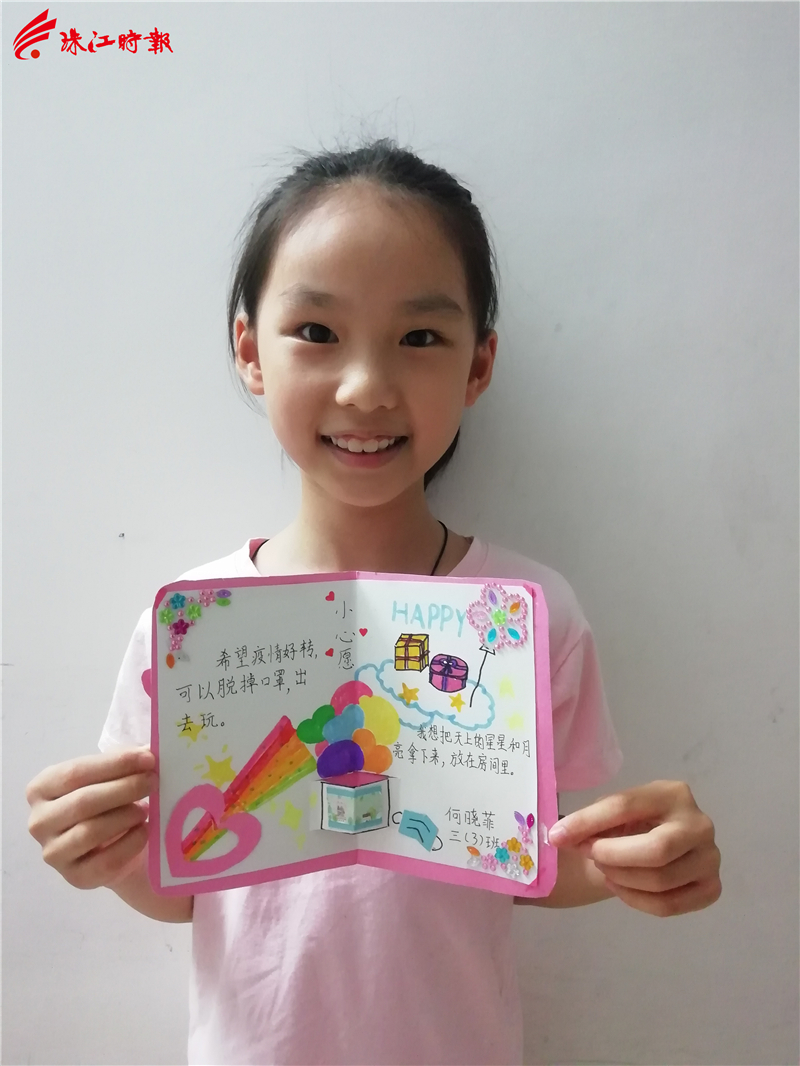 珠江時報
小心愿
希望疫情好转,
可以脱掉口罩,出
去玩。
HAPPY
我想把天上的星星和月
亮拿下来,放在房间里。
何晓菲
三(3)班